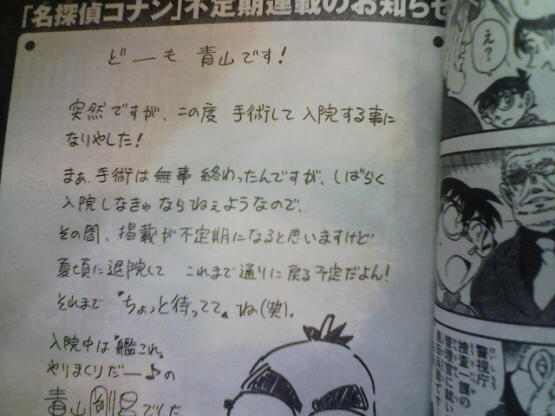 「名探偵コナン」不定期連載のお知らせ
どーも 青山です!
突然ですが、この度 手術して入院する事に
なりやした!
まぁ、手術は無事 終わったんですが、しばらく
入院しなきゃならねぇようなので、
その間、掲載が不定期になると思いますけど
夏頃に退院して これまで通りに戻る予定だよん!
それまで『ちょっと待ってて』ね(笑).
入院中は『艦これ』
やりまくりだー♪の
青山剛昌でした
え?
警視庁
捜査一課の
管理官に就い